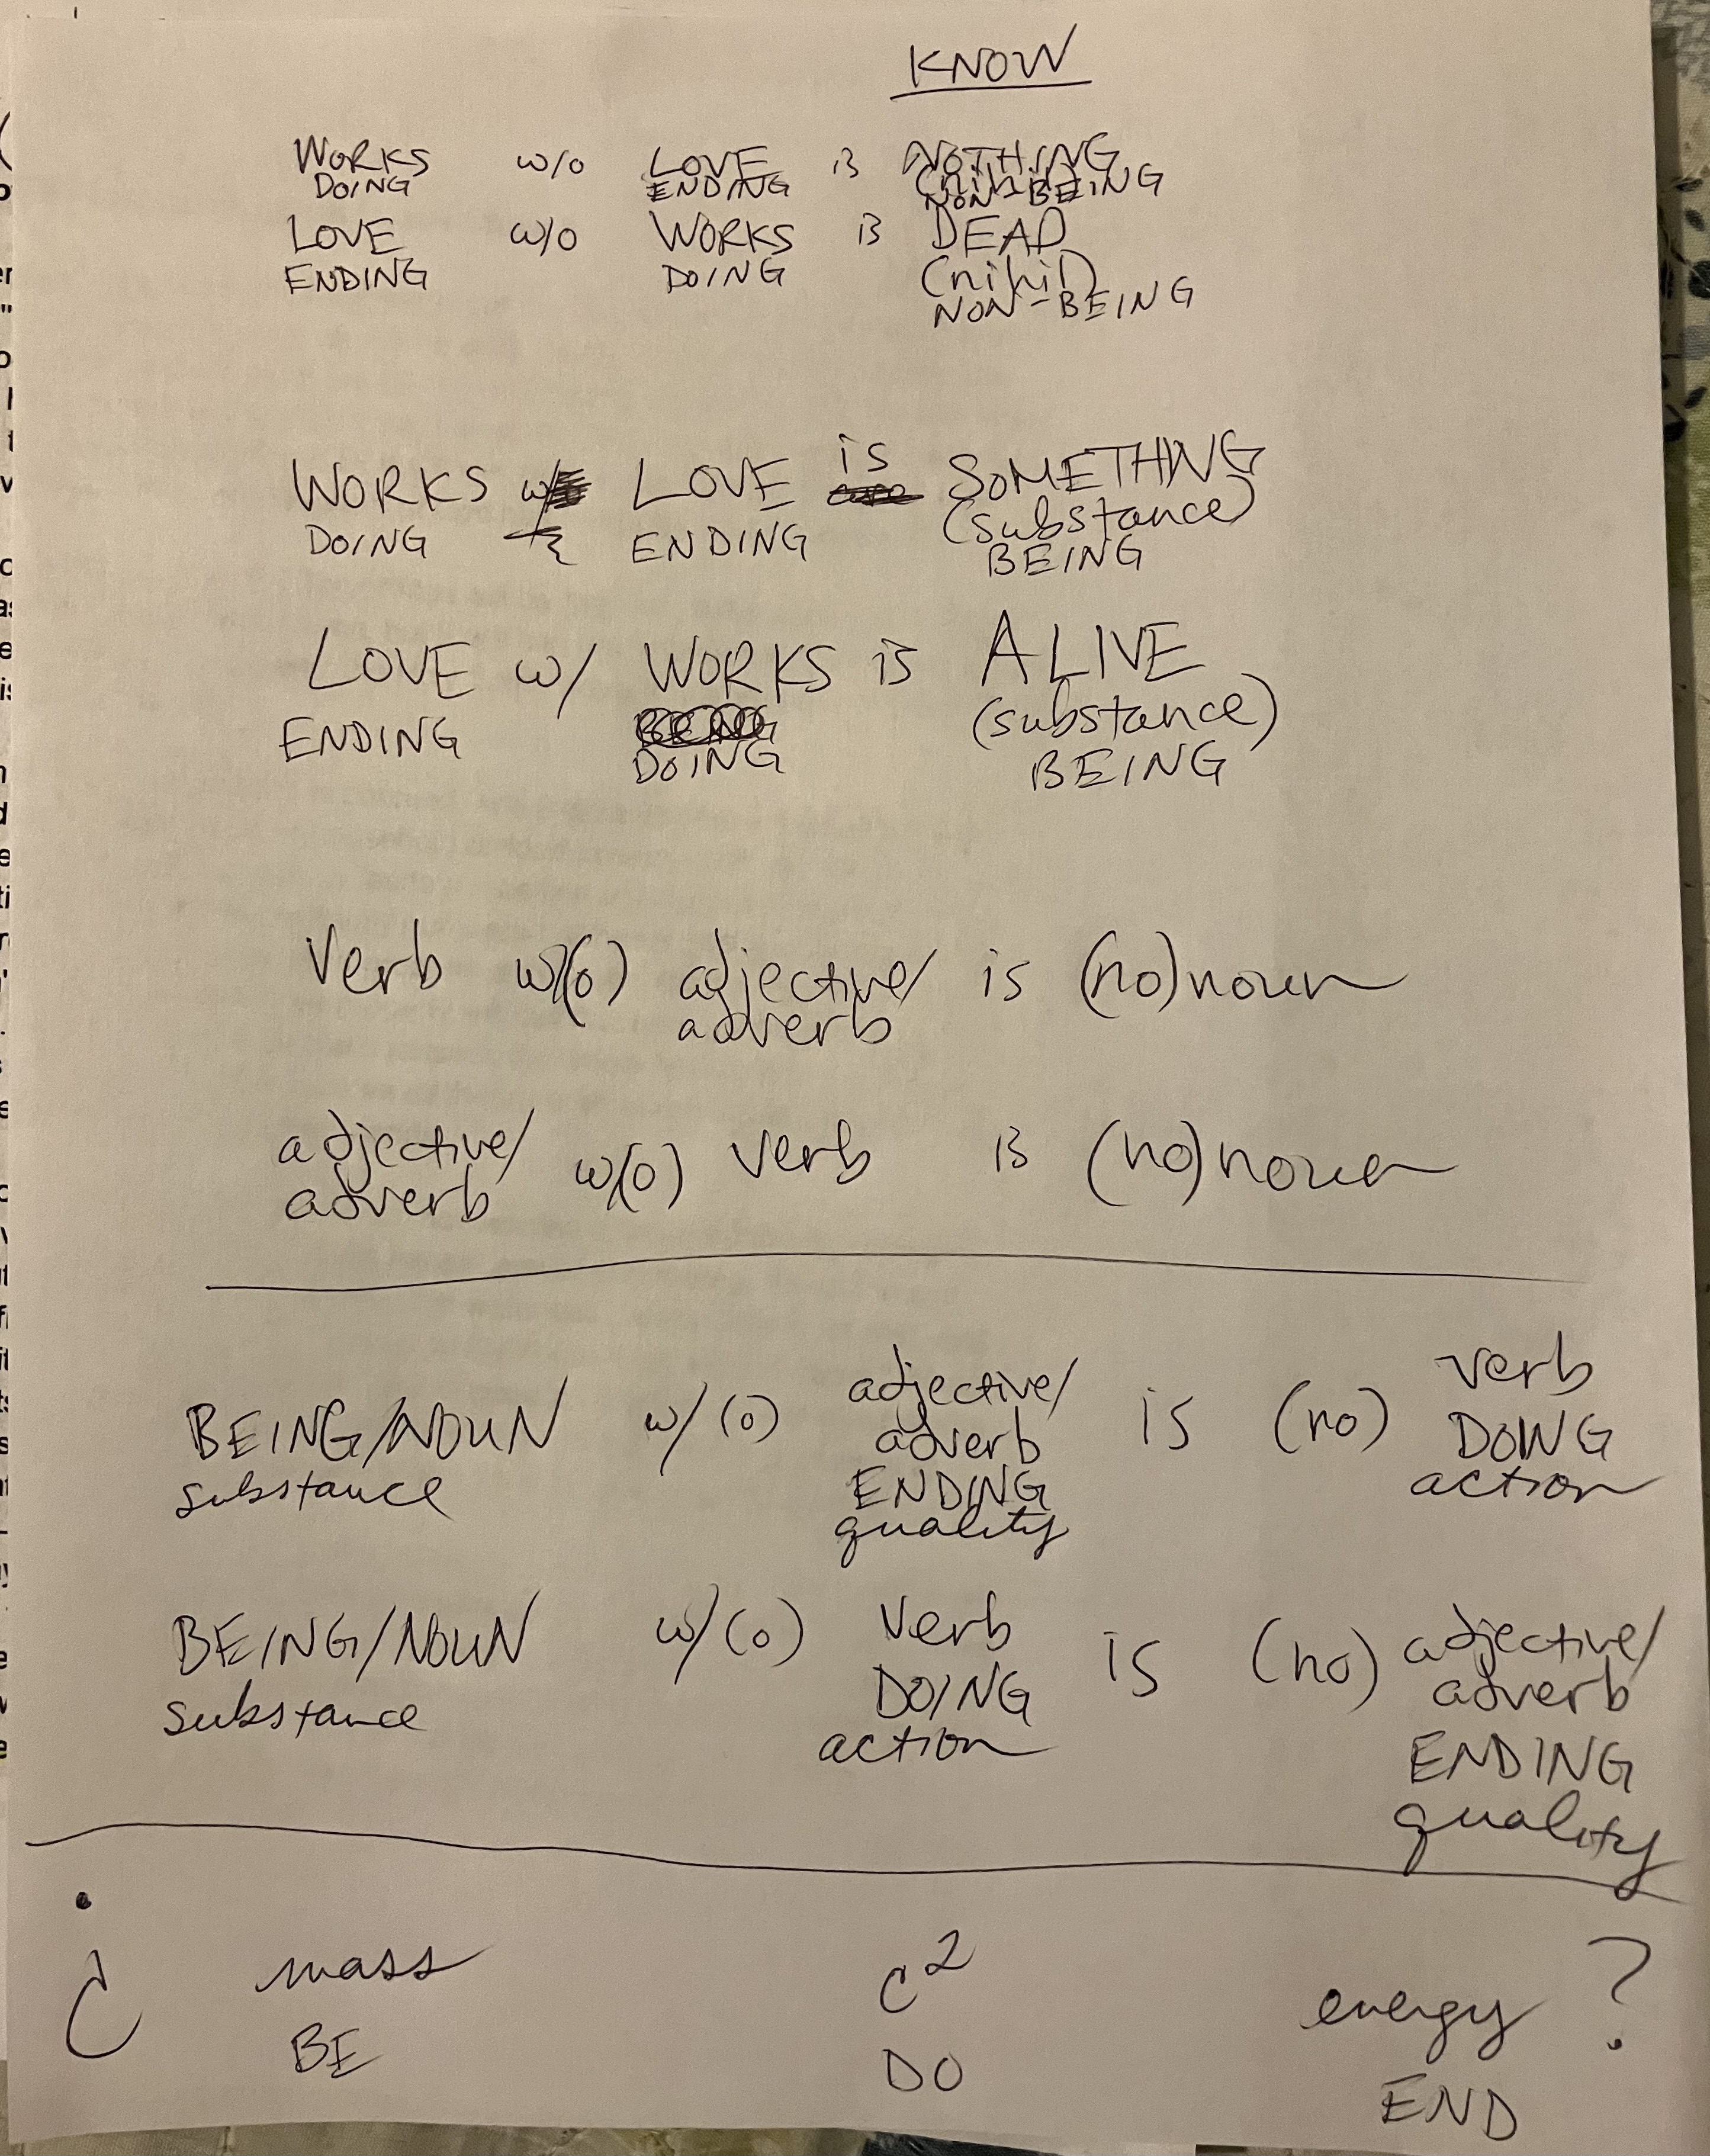 KNOW
WORKS w/o LOVE is NOTHING
DOING ENDING (nihil)
NON-BEING
LOVE w/o WORKS is DEAD
ENDING DOING (nihil)
NON-BEING
is
WORKS LOVE SOMETHING
(substance)
DOING ENDING BEING
LOVE w/ WORKS is ALIVE
(substance)
ENDING DOING BEING
Verb w/(o) adjective/ is (no)noun
adverb
adjective/ w/(o) verb is (no)noun
adverb
verb
BEING/NOUN w/(o) adjective/ is (no) DOING
substance adverb action
ENDING
quality
BEING/NOUN w/(o) Verb is (no) adjective/
substance DOING adverb
action ENDING
quality
¿ mass c² energy ?
BE DO END